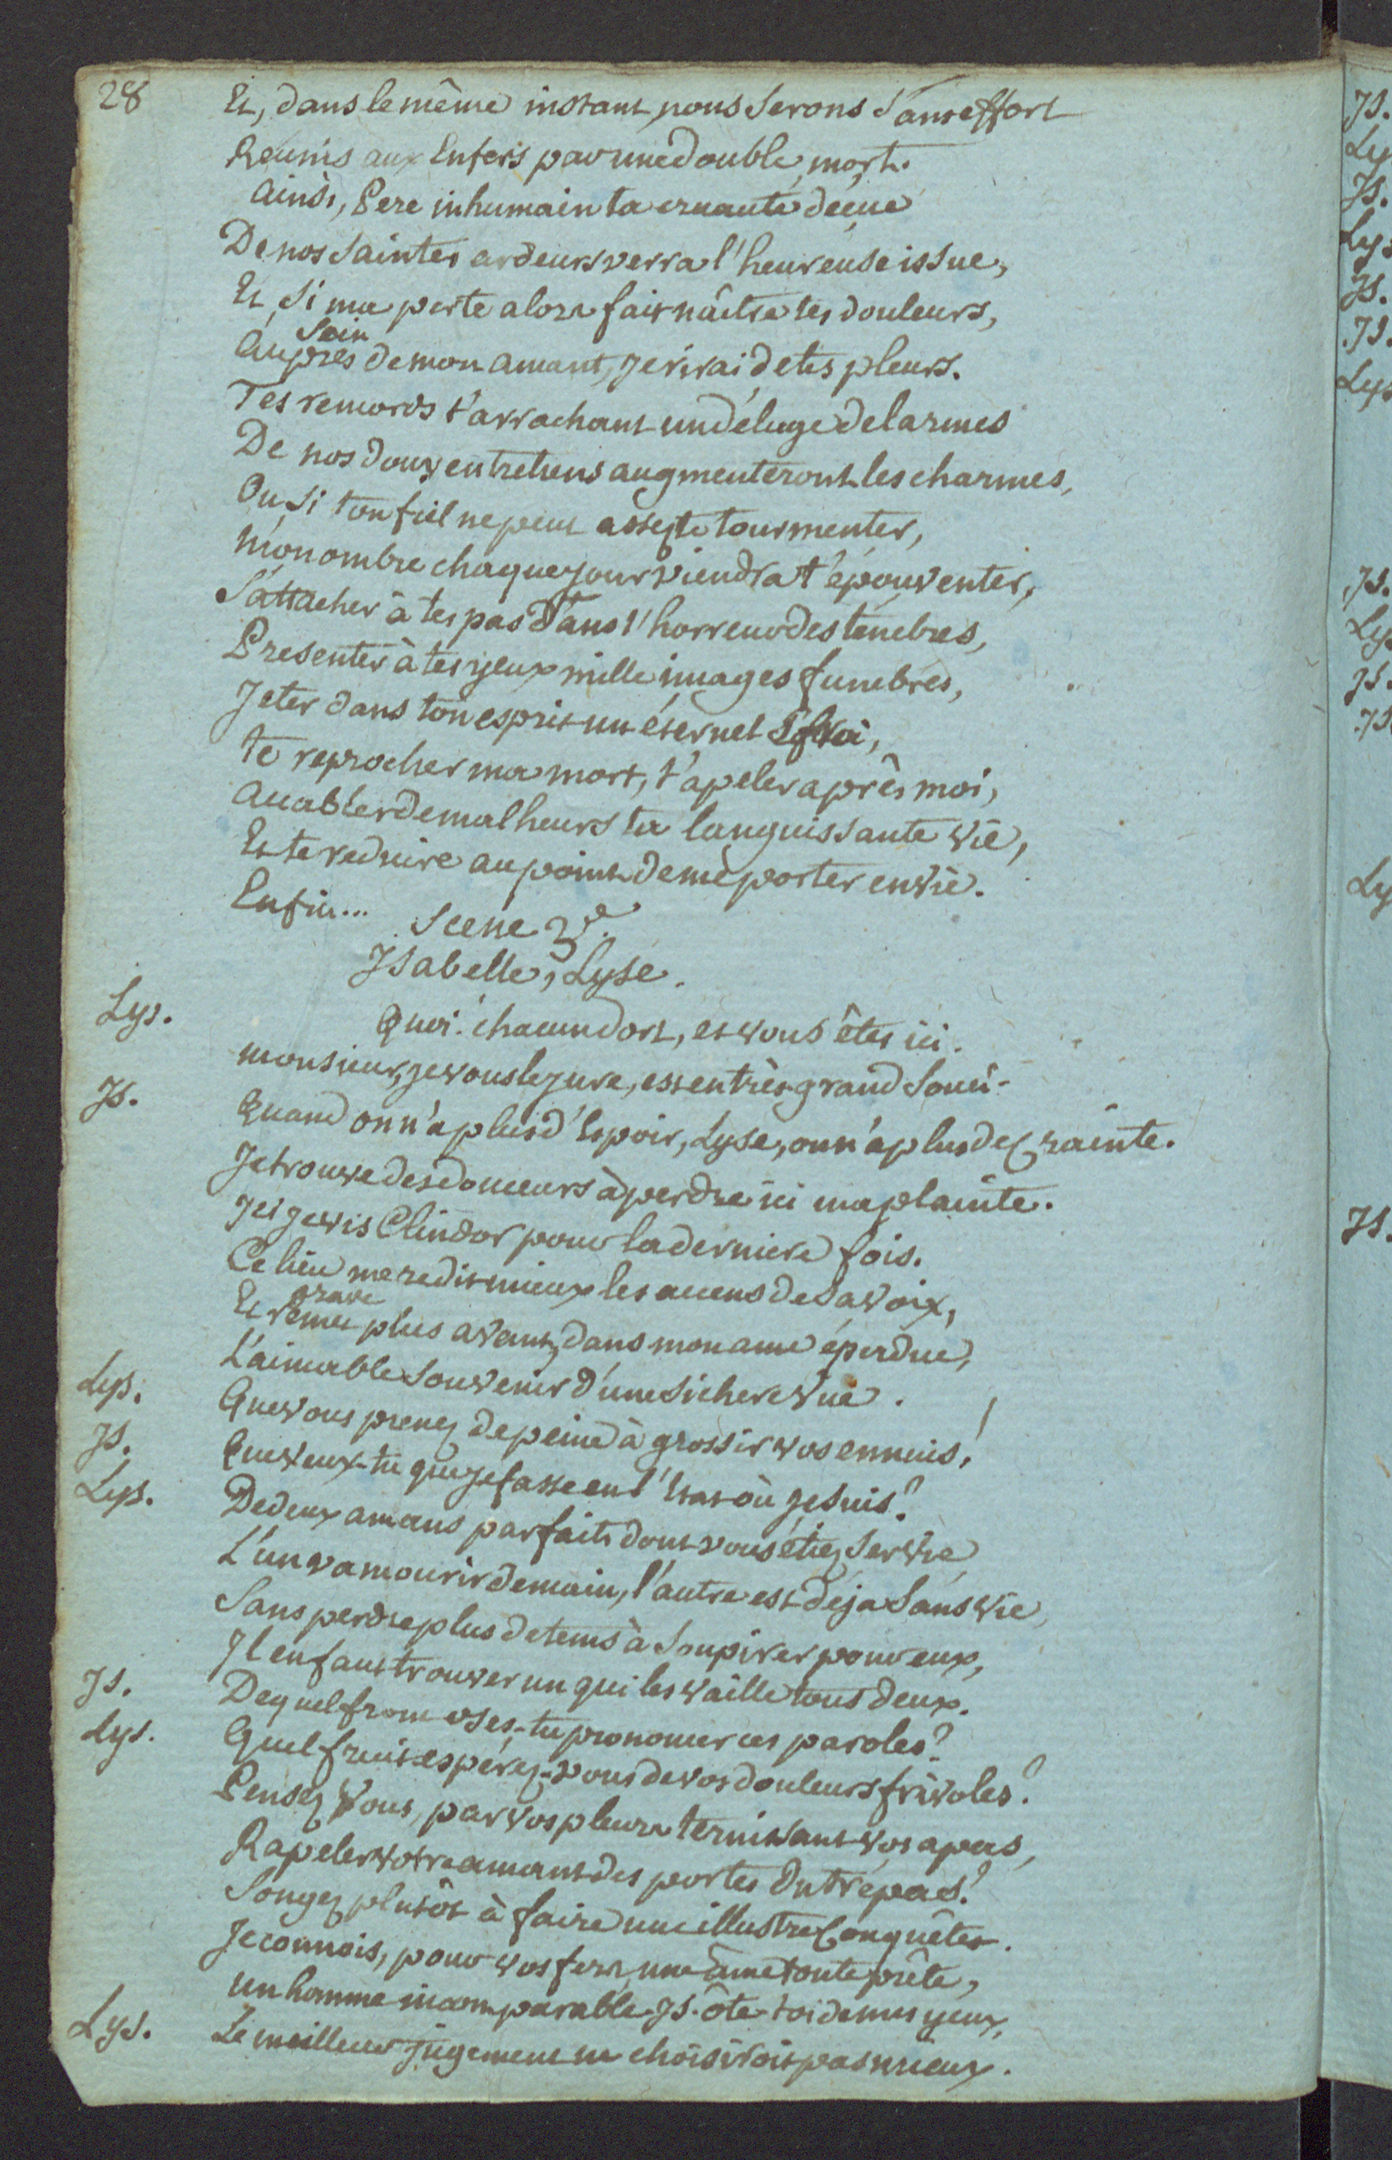 28
Et, dans le même instant, nous serons sans effort
Reunis aux Enfers par une double mort.
Ainsi, Pere inhumain ta cruauté déçue
De nos saintes ardeurs verra l'heureuse issue,
Et, si ma perte alors fait naître tes douleurs,
Sein
Auprès de mon amant, je rirai de tes pleurs.
Tes remords t'arrachant un déluge de larmes
De nos doux entretiens augmenteront les charmes,
Ou, si ton fiel ne peut assez te tourmenter,
Mon ombre chaque jour viendra t'épouventer,
S'attacher à tes pas dans l'horreur des tenebres,
Presenter à tes yeux mille images funebres,
Jeter dans ton esprit un éternel effroi,
te reprocher ma mort, t'apeler après moi,
Accabler de malheurs ta languissante vie,
Et te reduire au point de me porter envie.
Enfin...
Scene 3e.
Isabelle, Lyse.
Lys. Quoi! chacun dort, et vous êtes ici.
Monsieur, je vous le jure, est en très grand souci.
Js. Quand on n'a plus d'espoir, Lyse, on n'a plus de Crainte.
Je trouve des douceurs à perdre ici ma plainte.
Ici je vis Clindor pour la derniere fois.
Ce lieu me redit mieux les accens de sa voix,
grave
Et remet plus avant, dans mon ame éperdue,
L'aimable souvenir d'une si chere vue.
Lys. Que vous prenez de peine à grossir vos ennuis!
Js. Que veux-tu que je fasse en l'état où je suis?
Lys. De deux amans parfaits dont vous étiez servie
L'un va mourir demain, l'autre est deja sans vie,
Sans perdre plus de tems à soupirer pour eux,
Il en faut trouver un qui les vaille tous deux.
Js. De quel front oses-tu prononcer ces paroles?
Lys. Quel fruit espérez-vous de vos douleurs frivoles?
Pensez Vous, par vos pleurs ternissant vos apas,
Rapeler votre amant des portes du trépas?
Songez plutôt à faire une illustre Conquête.
Je connois, pour vos fers, une âme toute prête,
un homme incomparable. Js. ôte toi de mes yeux,
Lys. Le meilleur jugement ne choisiroit pas mieux.
Js.
Ly
Js.
Lys
Js.
Js.
Lys
Js.
Lys
Js.
Js
Ly
Js.